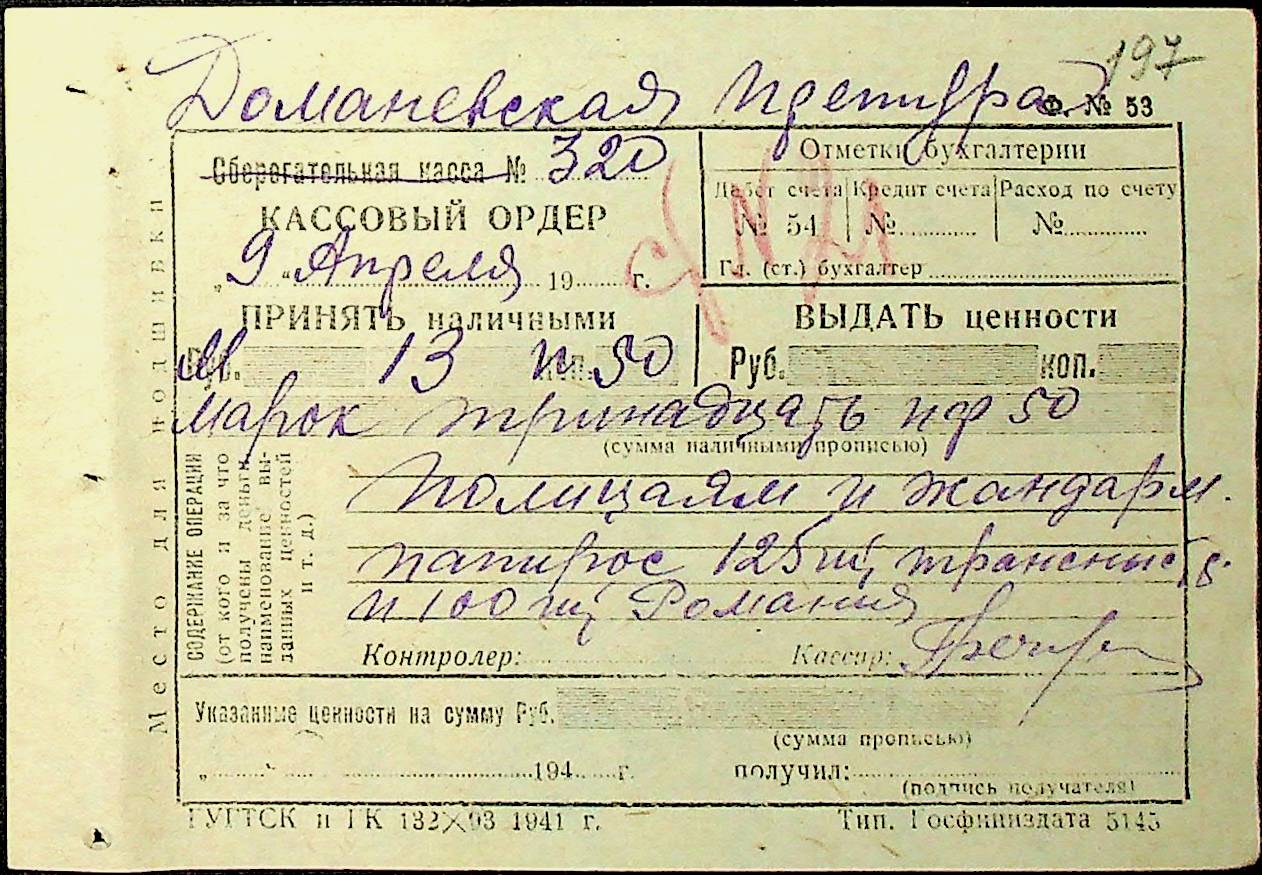 197
Доманевская претура
Ф. № 53
Сберегательная касса № 320
КАССОВЫЙ ОРДЕР
„ 9 “ Апреля 19 г.
Отметки бухгалтерии
Дебет счета Кредит счета Расход по счету
№ 54 № №
Гл. (ст.) бухгалтер
ПРИНЯТЬ наличными
Руб. М 13 п 50 коп.
ВЫДАТЬ ценности
Руб. коп.
Марок тринадцать пф 50
(сумма наличными прописью)
СОДЕРЖАНИЕ ОПЕРАЦИИ
(от кого и за что
получены деньги,
наименование вы-
данных ценностей
и т. д.)
Полицаям и жандарм.
папирос 125 шт транснист.
и 100 шт Романия
Контролер: Кассир:
Указанные ценности на сумму Руб.
(сумма прописью)
„ “ 194 г. получил:
(подпись получателя)
Место для подшивки
ГУГТСК и ГК 132 X 93 1941 г. Тип. Госфиниздата 5145